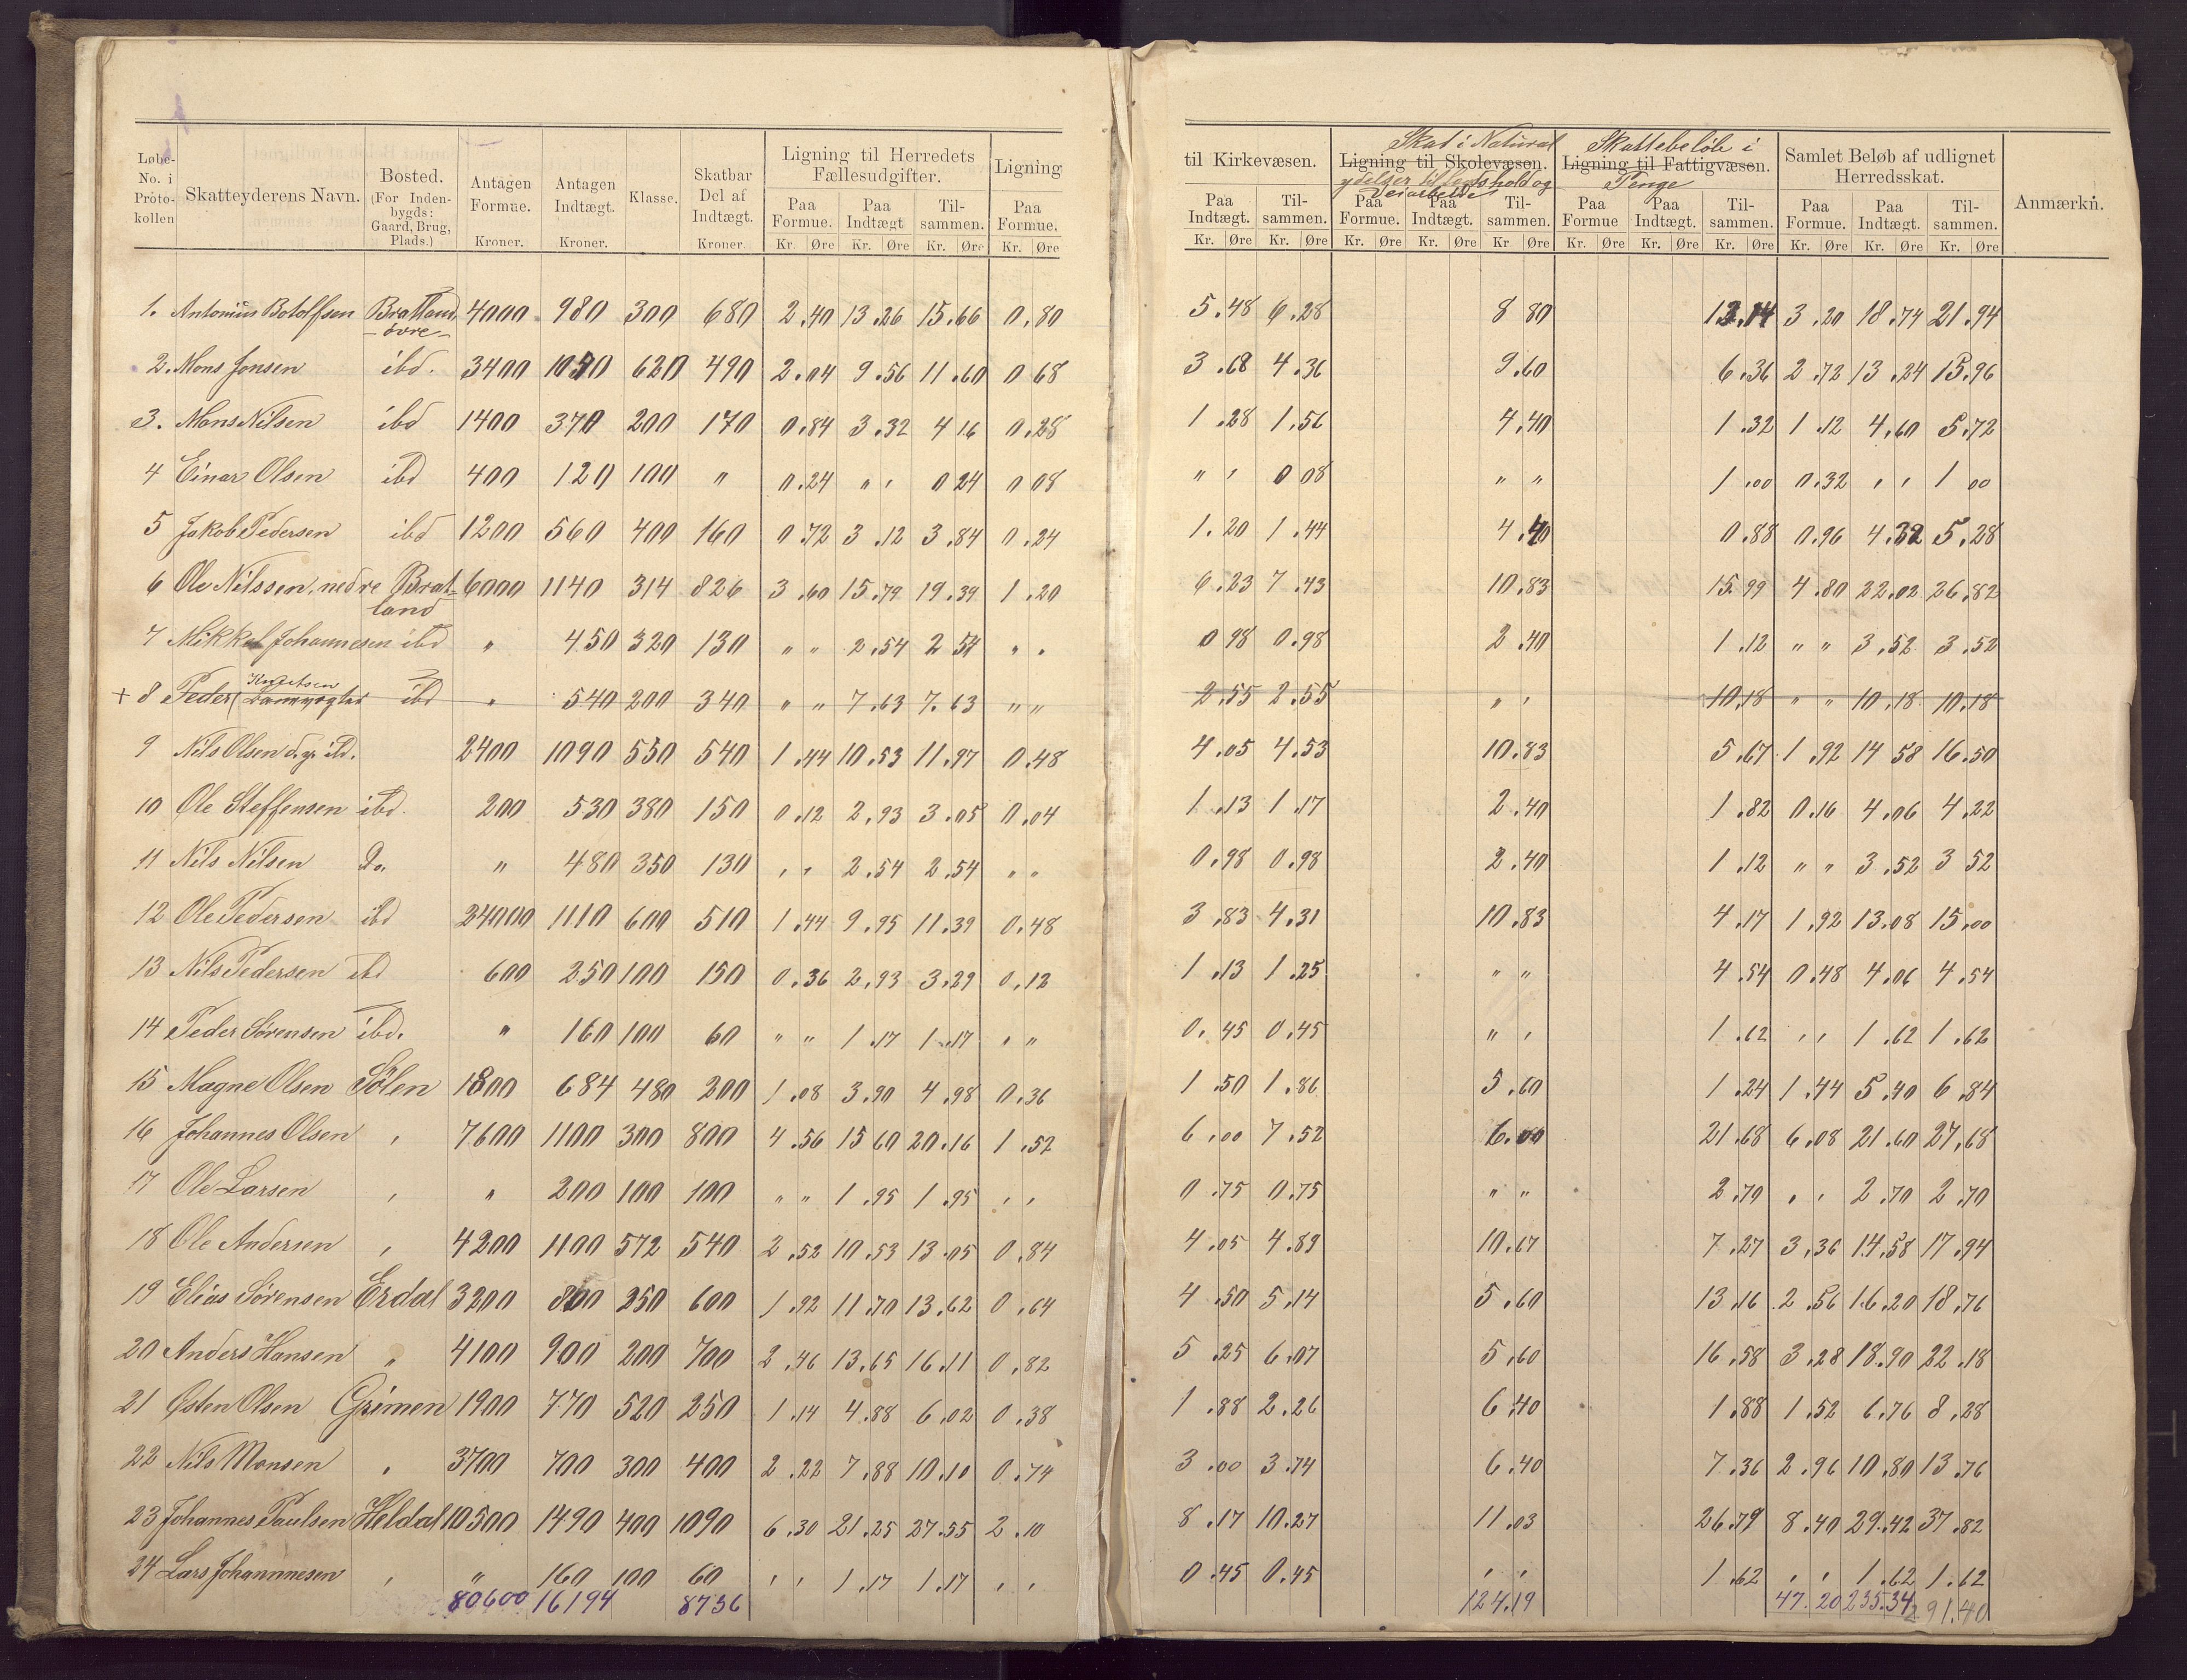 Løbe-No. i Proto-kollen | Skatteyderens Navn. | Bosted. (For Inden-bygds: Gaard, Brug, Plads.) | Antagen Formue. Kroner. | Antagen Indtægt. Kroner. | Klasse. | Skatbar Del af Indtægt. Kroner. | Ligning til Herredets Fællesudgifter. Paa Formue. Kr. Øre | Paa Indtægt Kr. Øre | Til-sammen. Kr. Øre | Ligning Paa Formue. Kr. Øre | til Kirkevæsen. Paa Indtægt. Kr. Øre | Til-sammen. Kr. Øre | Ligning til Skolevæsen. Skat i Natural ydelser til Veiarbeide Paa Formue. Kr. Øre | Paa Indtægt. Kr. Øre | Til-sammen. Kr Øre | Ligning til Fattigvæsen. Skattebeløb i Penge Paa Formue Kr. Øre | Paa Indtægt. Kr. Øre | Til-sammen. Kr. Øre | Samlet Beløb af udlignet Herredsskat. Paa Formue. Kr. Øre | Paa Indtægt. Kr. Øre | Til-sammen. Kr. Øre | Anmærkn.
1. Antonius Botolfsen Bratland øvre 4000 980 300 680 2.40 13.26 15.66 0.80 5.48 6.28 8 80 13.14 3.20 18.74 21.94
2. Mons Jonsen ibd. 3400 620 490 2.04 9.56 11.60 0 68 3.68 4.36 9.60 6.36 2.72 13.24 15.96
3. Mons Nilsen ibd 1400 370 200 170 0.84 3.32 4 16 0.28 1.28 1.56 4.40 1.32 1.12 4.60 5.72
4 Einar Olsen ibd 400 120 100 " 0.24 " " 0 24 0 08 " " 0 08 " " 1.00 0.32 " " 1 00
5 Jakob Pedersen ibd 1200 560 400 160 0.72 3.12 3.84 0.24 1.20 1.44 4.40 0.88 0.96 4.32 5.28
6 Ole Nilssen, nedre Bratland 6000 1140 314 826 3.60 15.79 19.39 1.20 6.23 7.43 10.83 15.99 4.80 22.02 26.82
7 Mikkel Johannesen ibd " 450 320 130 " " 2.54 2 54 " " 0 98 0.98 2.40 1.12 " " 3.52 3.52
+ 8 Peder Knutsen ibd " 540 200 340 " " 7.63 7.63 " " 2.55 2.55 " " 10.18 " " 10.18 10.18
9 Nils Olsen d.y. ibd. 2400 1090 550 540 1.44 10.53 11.97 0.48 4.05 4.53 10.83 5.67 1.92 14 58 16.50
10 Ole Steffensen ibd. 200 530 380 150 0.12 2.93 3.05 0.04 1.13 1.17 2.40 1.82 0.16 4.06 4.22
11 Nils Nilsen Do. " 480 350 130 " " 2.54 2.54 " " 0.98 0.98 2.40 1.12 " " 3.52 3 52
12 Ole Pedersen ibd 24000 1110 600 510 1.44 9.95 11.39 0.48 3.83 4.31 10.83 4.17 1.92 13.08 15.00
13 Nils Pedersen ibd 600 250 100 150 0.36 2.93 3.29 0.12 1.13 1.25 " " 4.54 0.48 4.06 4.54
14 Peder Sørensen ibd. " 160 100 60 " " 1.17 1.17 " " 0.45 0.45 " " 1.62 " " 1.62 1.62
15 Magne Olsen Sølen 1800 684 480 200 1.08 3.90 4.98 0.36 1.50 1.86 5.60 1.24 1.44 5.40 6.84
16 Johannes Olsen " 7600 1100 300 800 4.56 15 60 20.16 1.52 6.00 7.52 6.00 21.68 6.08 21.60 27.68
17 Ole Larsen " " 200 100 100 " " 1.95 1.95 " " 0.75 0.75 " " 2.70 " " 2.70 2.70
18 Ole Andersen " 4200 1100 572 540 2.52 10.53 13.05 0.84 4.05 4.89 10.67 7.27 3.36 14.58 17.94
19 Elias Sørensen Erdal 3200 800 250 600 1.92 11.70 13.62 0.64 4.50 5.14 5.60 13.16 2.56 16.20 18.76
20 Anders Hansen " 4100 900 200 700 2.46 13.65 16.11 0.82 5.25 6.07 5.60 16.58 3.28 18.90 22.18
21 Østen Olsen Grimen 1900 770 520 250 1.14 4.88 6.02 0.38 1.88 2.26 6.40 1.88 1.52 6.76 8.28
22 Nils Monsen " 3700 700 300 400 2.22 7.88 10.10 0.74 3.00 3.74 6.40 7.36 2.96 10.80 13.76
23 Johannes Paulsen Heldal 10500 1490 400 1090 6.30 21.25 27.55 2.10 8.17 10.27 11.03 26.79 8.40 29.42 37.82
24 Lars Johannnesen " " 160 100 60 " " 1.17 1.17 " " 0.45 0.45 " " 1.62 " " 1.62 1.62
80600 16194 8736 124.19 47.20 235.34 291.40